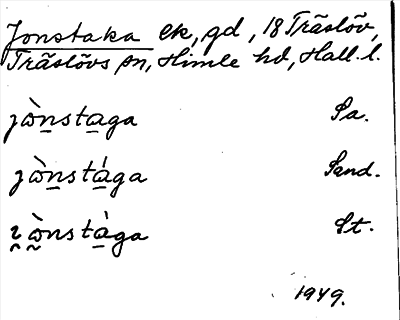 Jonstaka ek, gd, 18 Träslöv,
Träslövs sn, Himle hd, Hall. l.
jὼn̲sta̲ga Sa.
jὼn̲stá̲ga Sand.
ɪ̯ὼ̰nstà̲ga St.
1949.